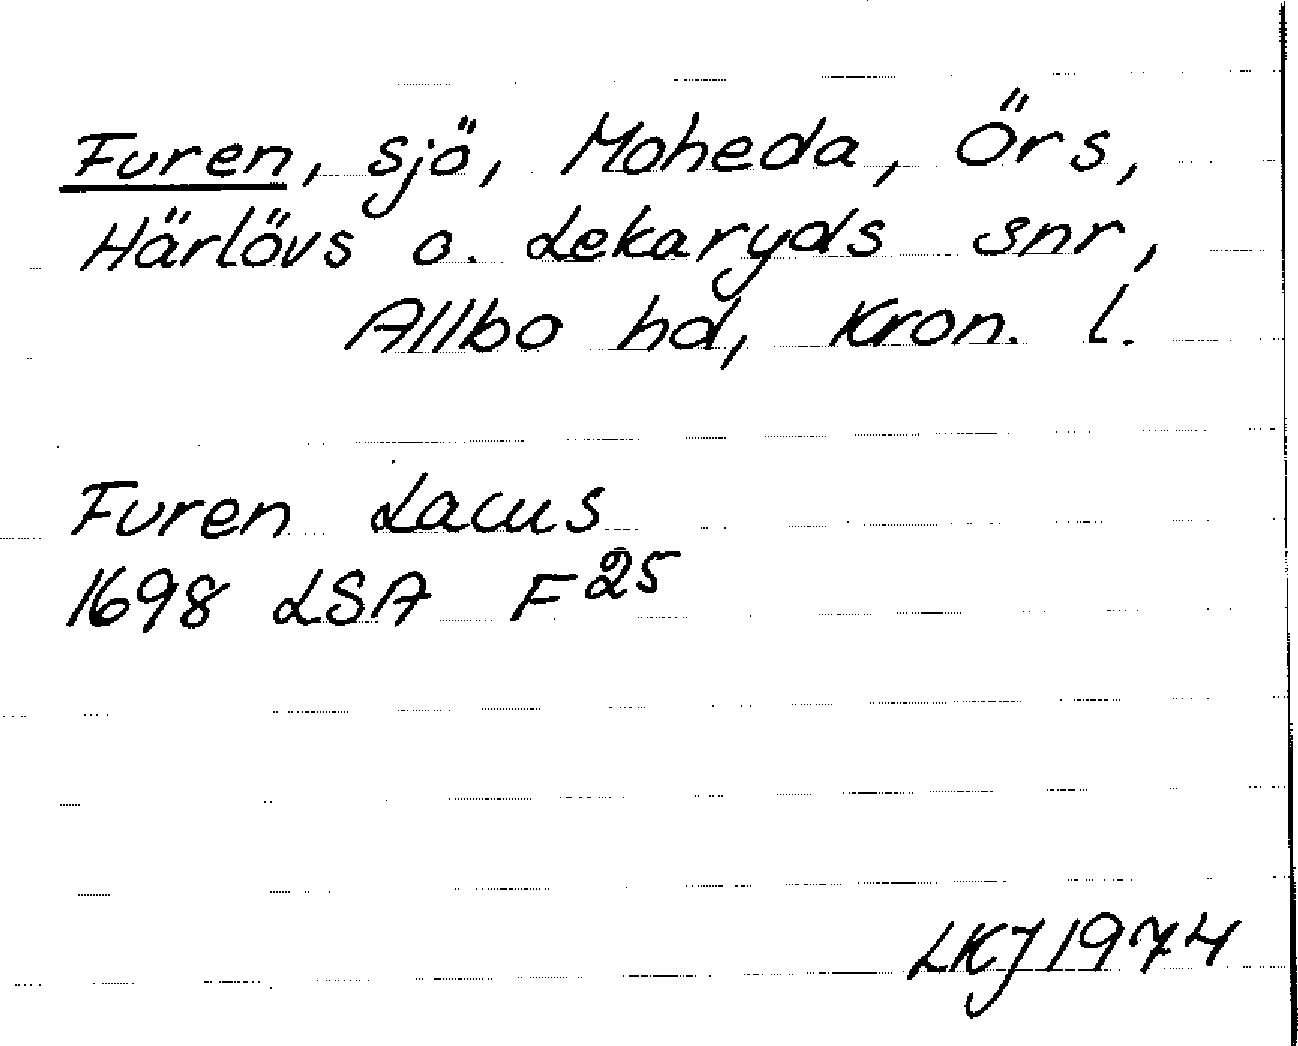 Furen, sjö, Moheda, Örs,
Härlövs o. Lekaryds snr,
Allbo hd, Kron. l.
Furen Lacus
1698 LSA F25
LKJ 1974